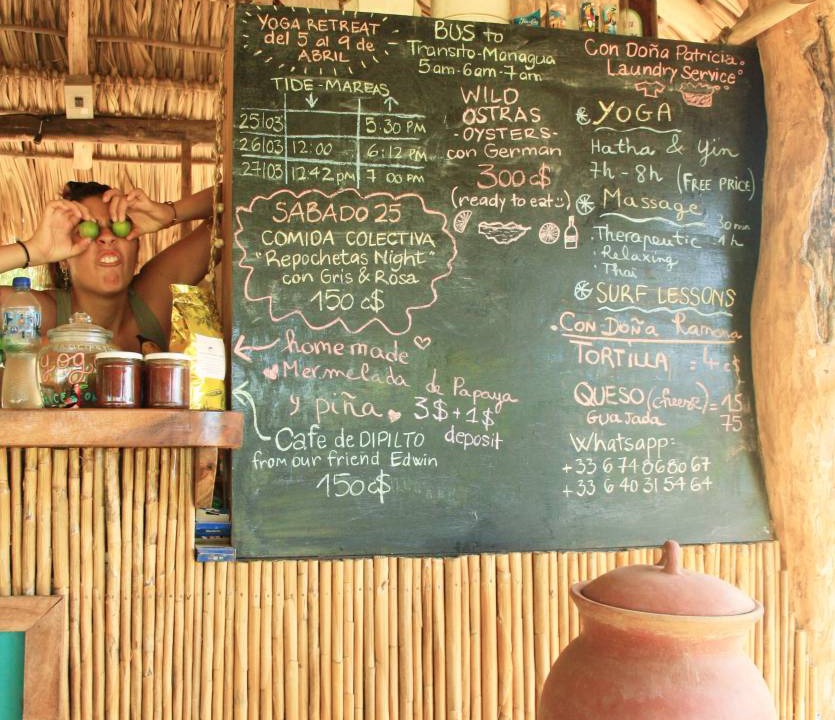 YOGA RETREAT
del 5 al 9 de
ABRIL
TIDE - MAREAS
25|03 5:30 PM
26|03 12:00 6:12 PM
27|03 12:42 pm 7 00 PM
SABADO 25
COMIDA COLECTIVA
"Repochetas Night"
con Gris & Rosa
150 c$
homemade
Mermelada de Papaya
y piña 3$+1$
deposit
Cafe de DIPILTO
from our friend Edwin
150 c$
BUS to
Transito-Managua
5am-6am-7am
WILD
OSTRAS
-OYSTERS-
con German
300 c$
(ready to eat :)
Con Doña Patricia:
Laundry Service
YOGA
Hatha & Yin
7h - 8h (FREE PRICE)
Massage
30mn
· Therapeutic 1h
· Relaxing
· Thai
SURF LESSONS
. Con Doña Ramona
TORTILLA : 4 c$
QUESO (cheese) = 15
GUAJADA 75
Whatsapp:
+33 6 74 86 80 67
+33 6 40 31 54 64
yoga